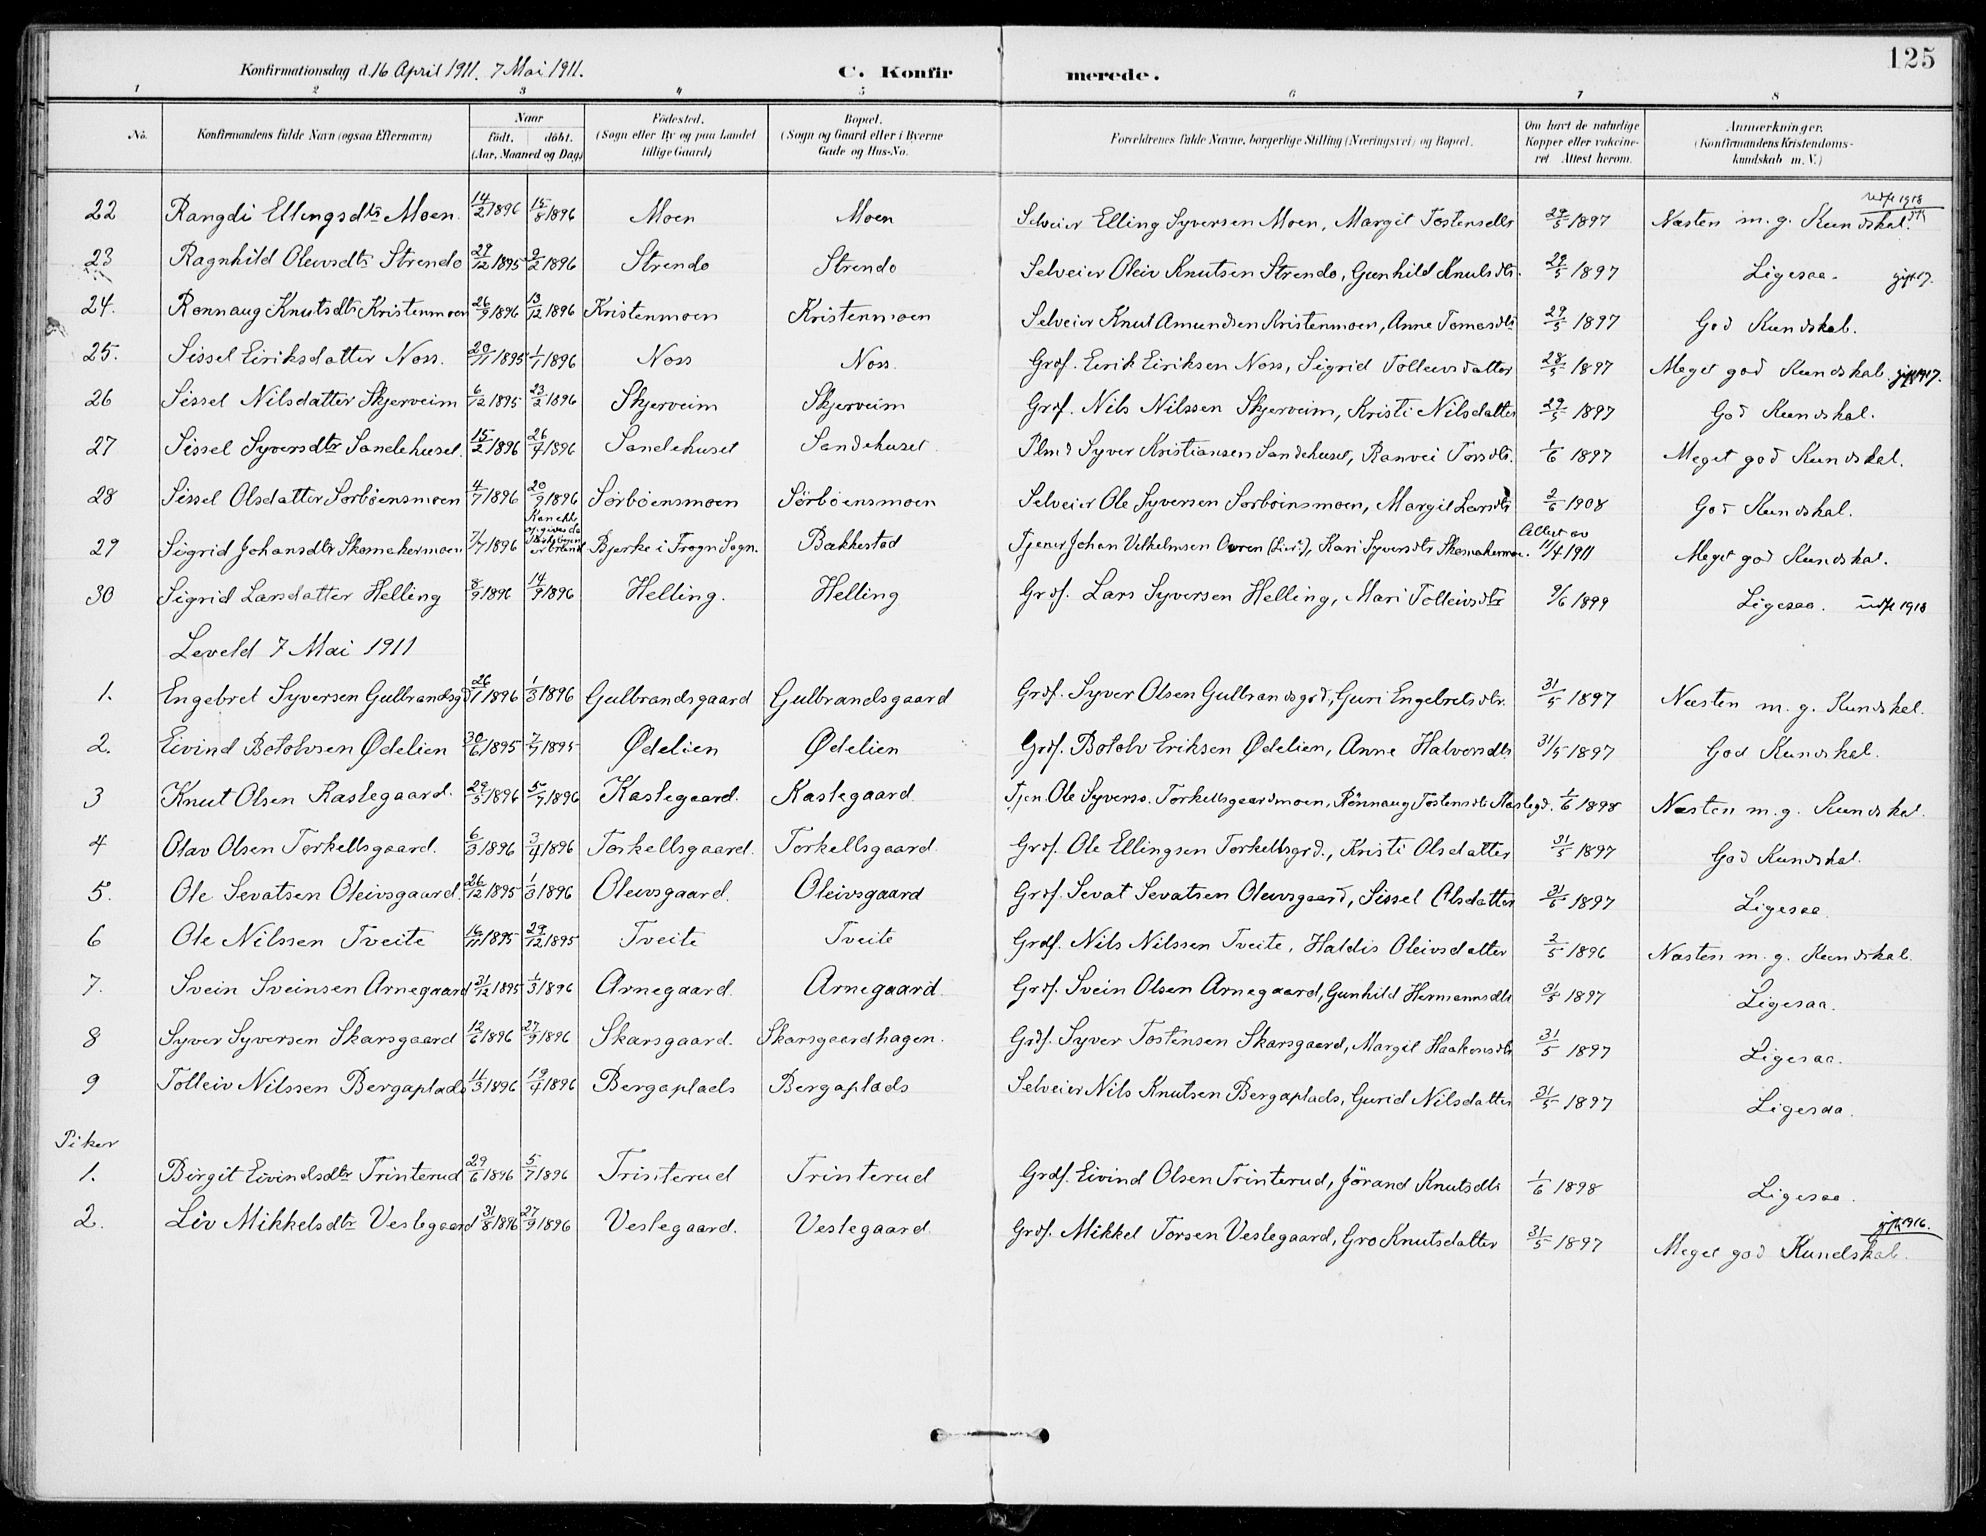 125
Konfirmationsdag d. 16 April 1911. 7 Mai 1911. C. Konfirmerede.
1 2 3 4 5 6 7 8
No. Konfirmandens fulde Navn (ogsaa Efternavn) Naar født. døbt. (Aar, Maaned og Dag) Fødested. (Sogn eller By og paa Landet tillige Gaard) Bopæl. (Sogn og Gaard eller i Byerne Gade og Hus-No. Forældrenes fulde Navne, borgerlige Stilling (Næringsvei) og Bopæl. Om havt de naturlige Kopper eller vakcineret Attest herom. Anmærkninger. (Konfirmandens Kristendomskundskab m. V.)
22 Rangdi Ellingsdtr Moen 14/2 1896 15/8 1896 Moen Moen Selveier Elling Syversen Moen, Margit Tostensdtr 29/5 1897 Næsten m. g. Kundskab. utfl 1918
23 Ragnhild Oleivsdtr Strendo 29/12 1895 9/2 1896 Strendo Strendo Selveier Oleiv Knutsen Strendo, Gunhild Knutsdtr. 29/5 1897 Ligesaa. gift 17.
24. Rønnaug Knutsdtr Kristenmoen 26/9 1896 13/12 1896 Kristenmoen Kristenmoen Selveier Knut Amundsen Kristenmoen, Anne Tomasdtr 29/5 1897 God Kundskab.
25. Sissel Eiriksdatter Noss. 20/11 1895 1/1 1896 Noss Noss. Grdf. Eirik Eiriksen Noss, Sigrid Tolleivsdatter 28/5 1897 Meget god Kundskab. gift 1917.
26 Sissel Nilsdatter Skjerveim 6/12 1895 23/2 1896 Skjerveim Skjerveim Grdf. Nils Nilssen Skjerveim, Kristi Nilsdatter 29/5 1897 God Kundskab.
27 Sissel Syversdtr Sandehuset. 15/2 1896 26/4 1896 Sandehuset Sandehuset Plmd Syver Kristiansen Sandehuset, Ranvei Torsdtr. 1/6 1897 Meget god Kundskab.
28 Sissel Olsdatter Sørbøensmoen 4/7 1896 20/9 1896 Sørbøensmoen Sørbøensmoen Selveier Ole Syversen Sørbøinsmoen, Margit Larsdtr 2/6 1908 God Kundskab.
29 Sigrid Johansdtr Skomakermoen 7/7 1896 Kan ikke opgives da Kirkebøkene er brændt Bjerke i Frogn Sogn. Bakkestad Tjener Johan Vilhelmsen Ovren (Lier), Kari Syversdtr Skomakermoen. Attest av 11/4 1911 Meget god Kundskab.
30 Sigrid Larsdatter Helling 8/9 1896 14/9 1896 Helling. Helling Grdf. Lars Syversen Helling, Mari Tolleivsdtr 9/6 1899 Ligesaa. utfl 1918
Leveld 7 Mai 1911
1. Engebret Syversen Gulbrandsgd 26/1 1896 1/3 1896 Gulbrandsgaard Gulbrandsgaard Grdf. Syver Olsen Gulbrandsgrd, Guri Engebretsdtr. 31/5 1897 Næsten m. g. Kundskab.
2. Eivind Botolvsen Ødelien 30/6 1895 7/7 1895 Ødelien Ødelien Grdf. Botolv Eriksen Ødelien, Anne Halvorsdtr 31/5 1897 God Kundskab.
3 Knut Olsen Kaslegaard. 29/3 1896 5/7 1896 Kaslegaard. Kaslegaard. Tjen. Ole Syvers. Torkellsgaardmoen, Rønnaug Tostensdtr Kaslegd. 1/6 1898 Næsten m. g. Kundskab.
4 Olav Olsen Torkellsgaard. 6/3 1896 3/4 1896 Torkellsgaard. Torkellsgaard. Grdf. Ole Ellingsen Torkellsgrd., Kristi Olsdatter 31/5 1897 God Kundskab.
5. Ole Sevatsen Oleivsgaard. 26/12 1895 1/3 1896 Oleivsgaard. Oleivsgaard Grdf. Sevat Sevatsen Oleivsgaard, Sissel Olsdatter 31/5 1897 Ligesaa.
6 Ole Nilssen Tveite 16/11 1895 29/12 1895 Tveite Tveite Grdf. Nils Nilssen Tveite, Haldis Oleivsdatter 2/5 1896 Næsten m. g. Kundskab.
7. Svein Sveinsen Arnegaard 31/12 1895 1/3 1896 Arnegaard. Arnegaard. Grdf. Svein Olsen Arnegaard, Gunhild Hermannsdtr 31/5 1897 Ligesaa.
8 Syver Syversen Skarsgaard 12/6 1896 27/9 1896 Skarsgaard. Skarsgaardhagen. Grdf. Syver Tostensen Skarsgaard, Margit Haakonsdtr 31/5 1897 Ligesaa.
9 Tolleiv Nilssen Bergaplads 11/3 1896 19/4 1896 Bergaplads Bergaplads Selveier Nils Knutsen Bergaplads, Gurid Nilsdatter 31/5 1897 Ligesaa.
Piker
1. Birgit Eivindsdtr Trinterud 29/6 1896 5/7 1896 Trinterud Trinterud Grdf. Eivind Olsen Trinterud, Jørand Knutsdtr 1/6 1898 Ligesaa.
2. Liv Mikkelsdtr Veslegaard 31/8 1896 27/9 1896 Veslegaard. Veslegaard. Grdf. Mikkel Torsen Veslegaard, Gro Knutsdatter 31/5 1897 Meget god Kundskab. gift 1916.